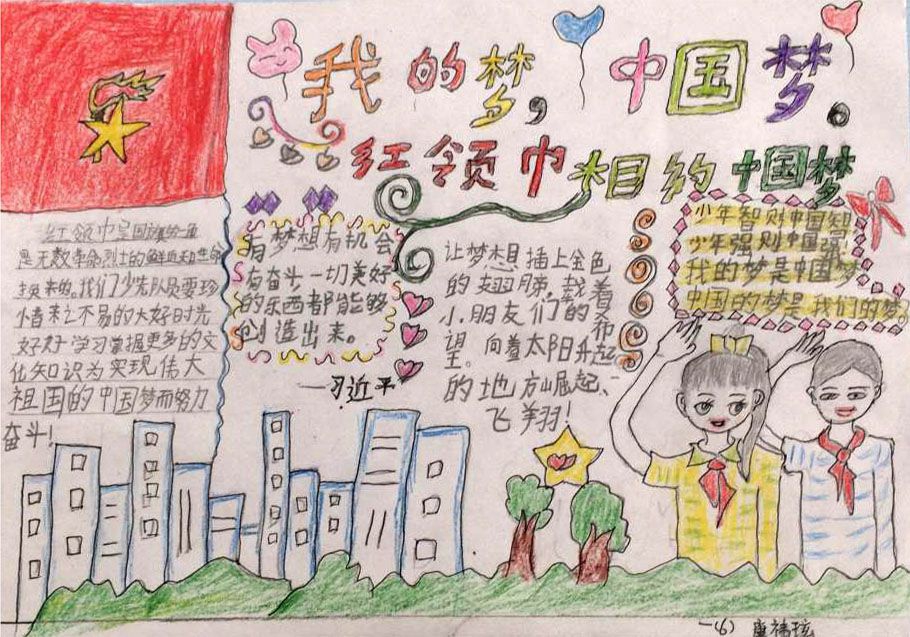 我的梦，中国梦。
红领巾相约中国梦
红领巾是国旗的一角
是无数革命烈士的鲜血和生命
换来的。我们少先队员要珍
惜来之不易的大好时光
好好学习掌握更多的文
化知识为实现伟大
祖国的中国梦而努力
奋斗！
有梦想有机会
有奋斗一切美好
的东西都能够
创造出来。
——习近平
让梦想插上金色
的翅膀，载着
小朋友们的希
望。向着太阳升起
的地方崛起、
飞翔！
少年智则中国智
少年强则中国强！
我的梦是中国梦
中国的梦是我们的梦。
一（6）